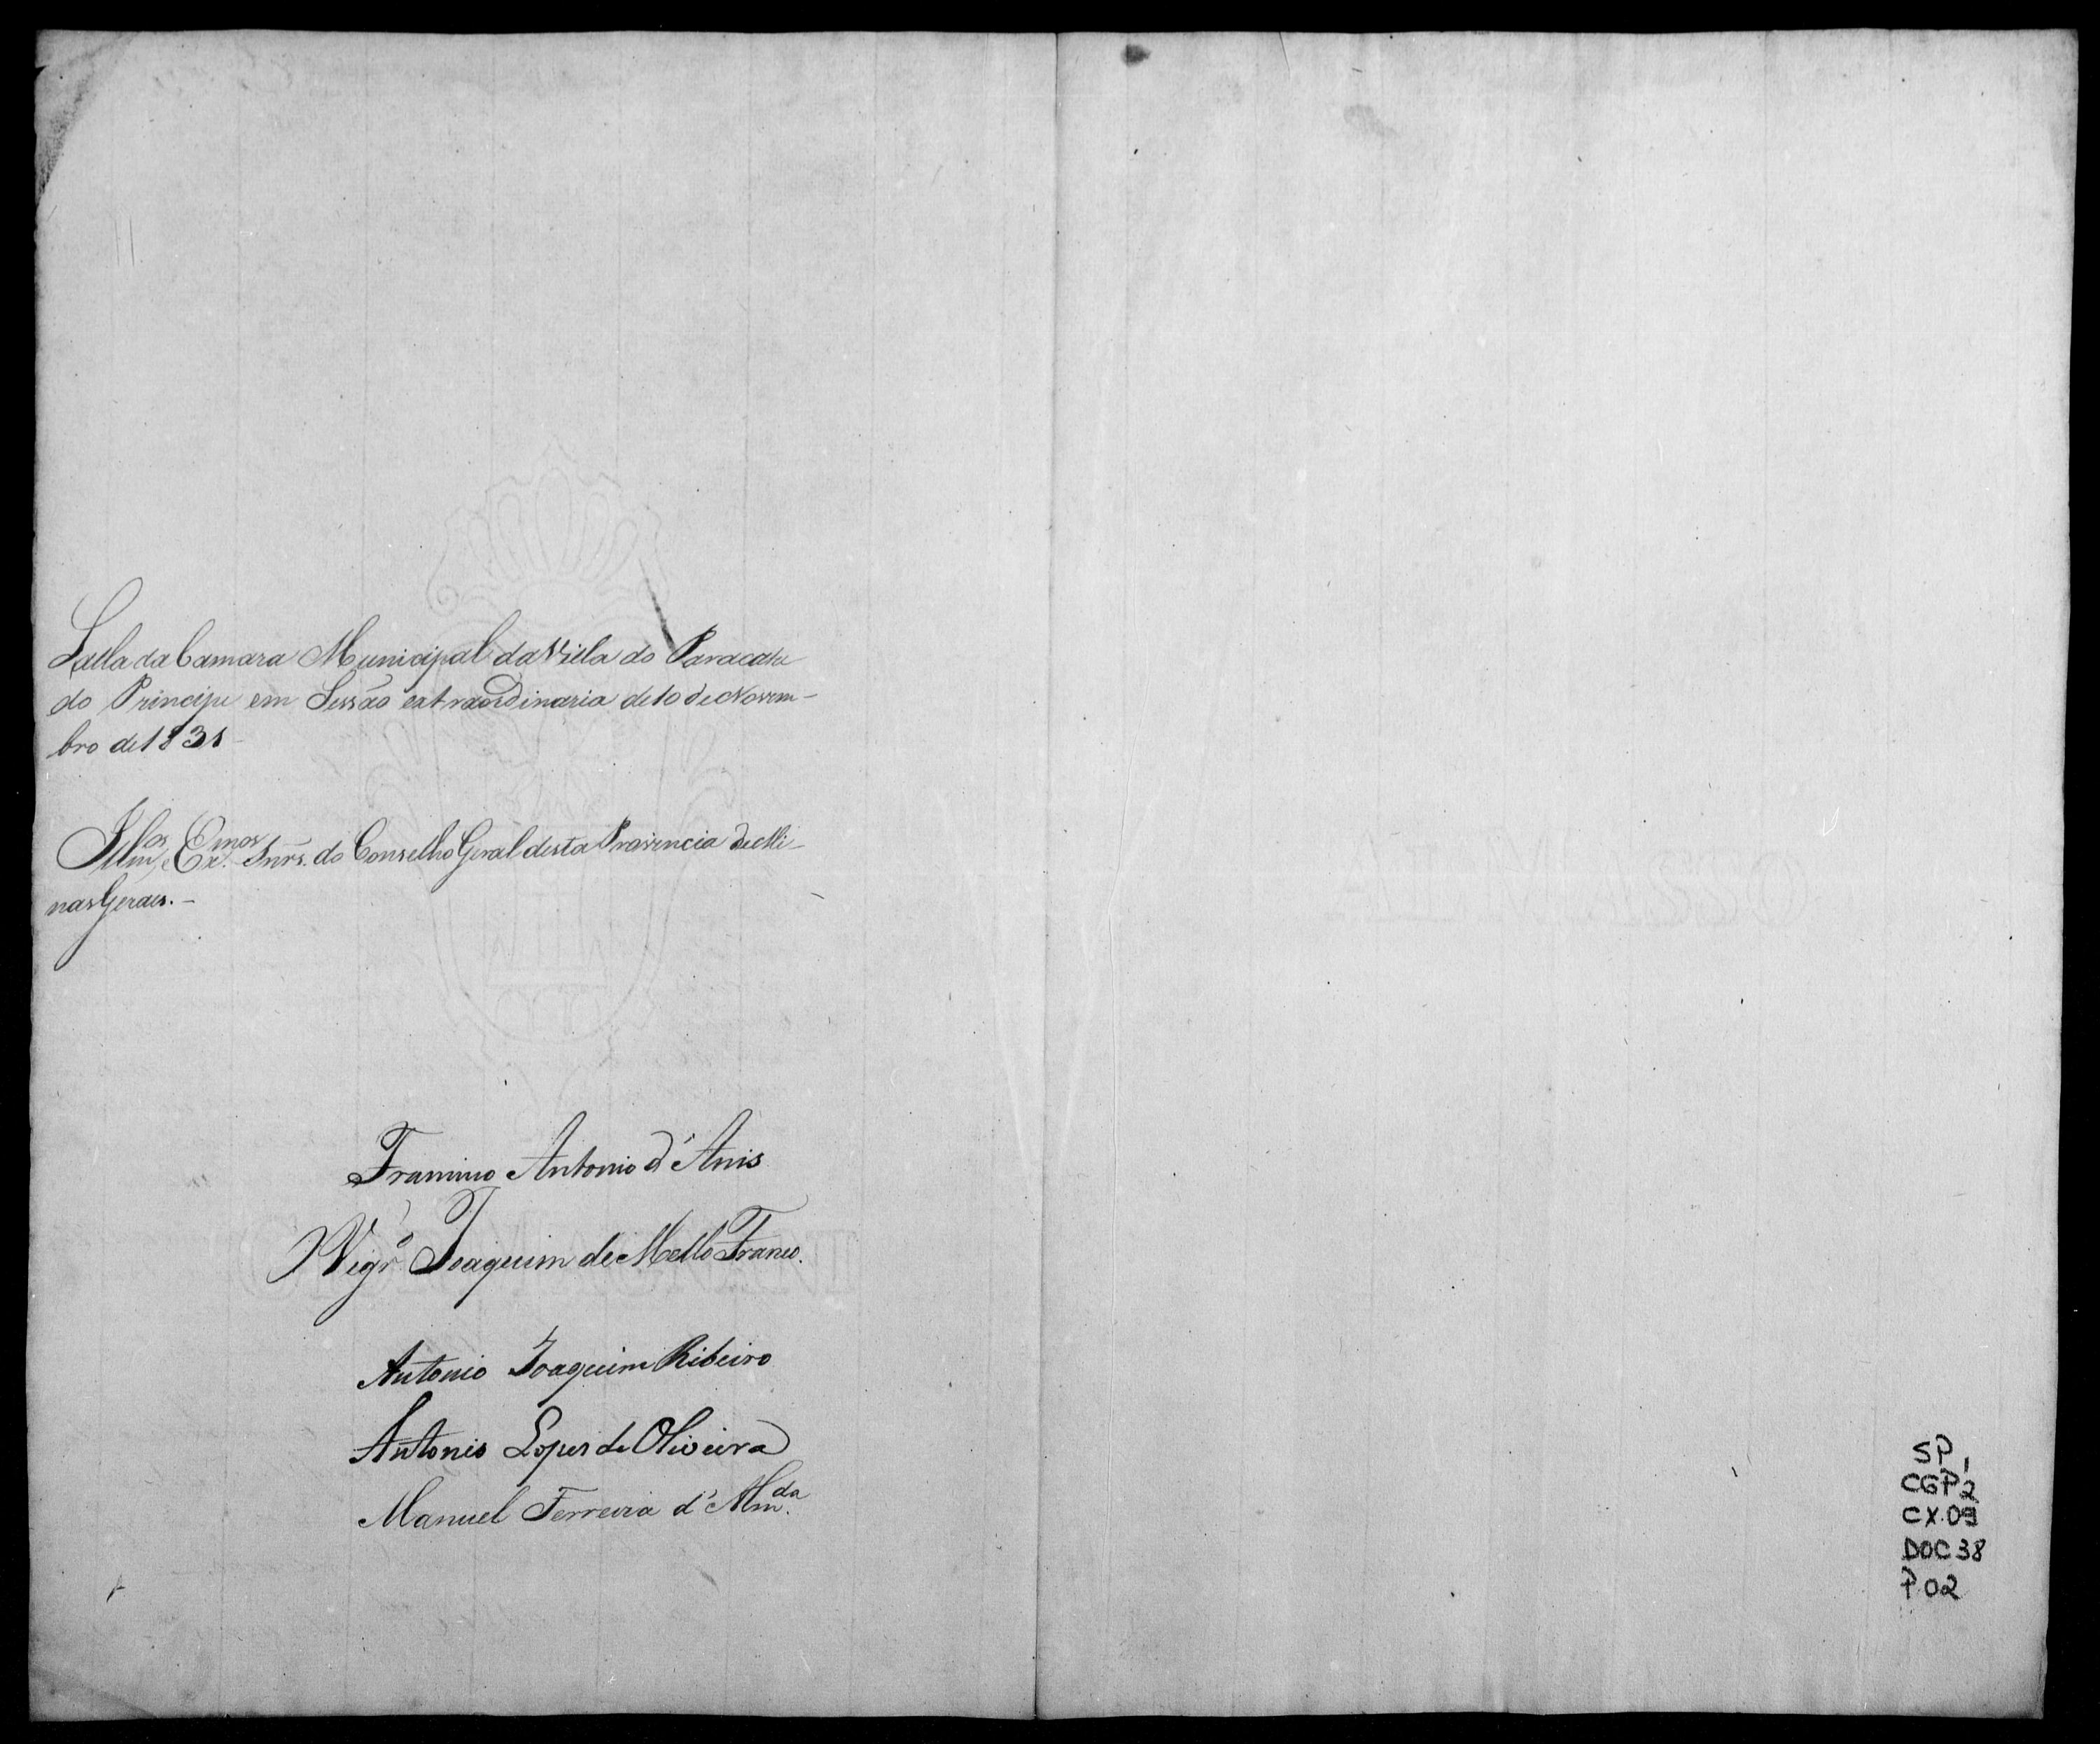 Salla da Camara Municipal da Villa do Paracatu
do Principe em Sessão extraordinaria de 10 de Novem-
bro de 1831
Illmos, e Exmos. Snrs. do Conselho Geral desta Provincia de Mi-
nas Geraes. -
Antonio d'
Vigro. Joaquim de Mello Franco.
Antonio Joaquim Ribeiro
Antonio Lopes de Oliveira
Manuel Ferreira d'Almda.
SP,
CGP2
CX.09
DOC 38
P.02